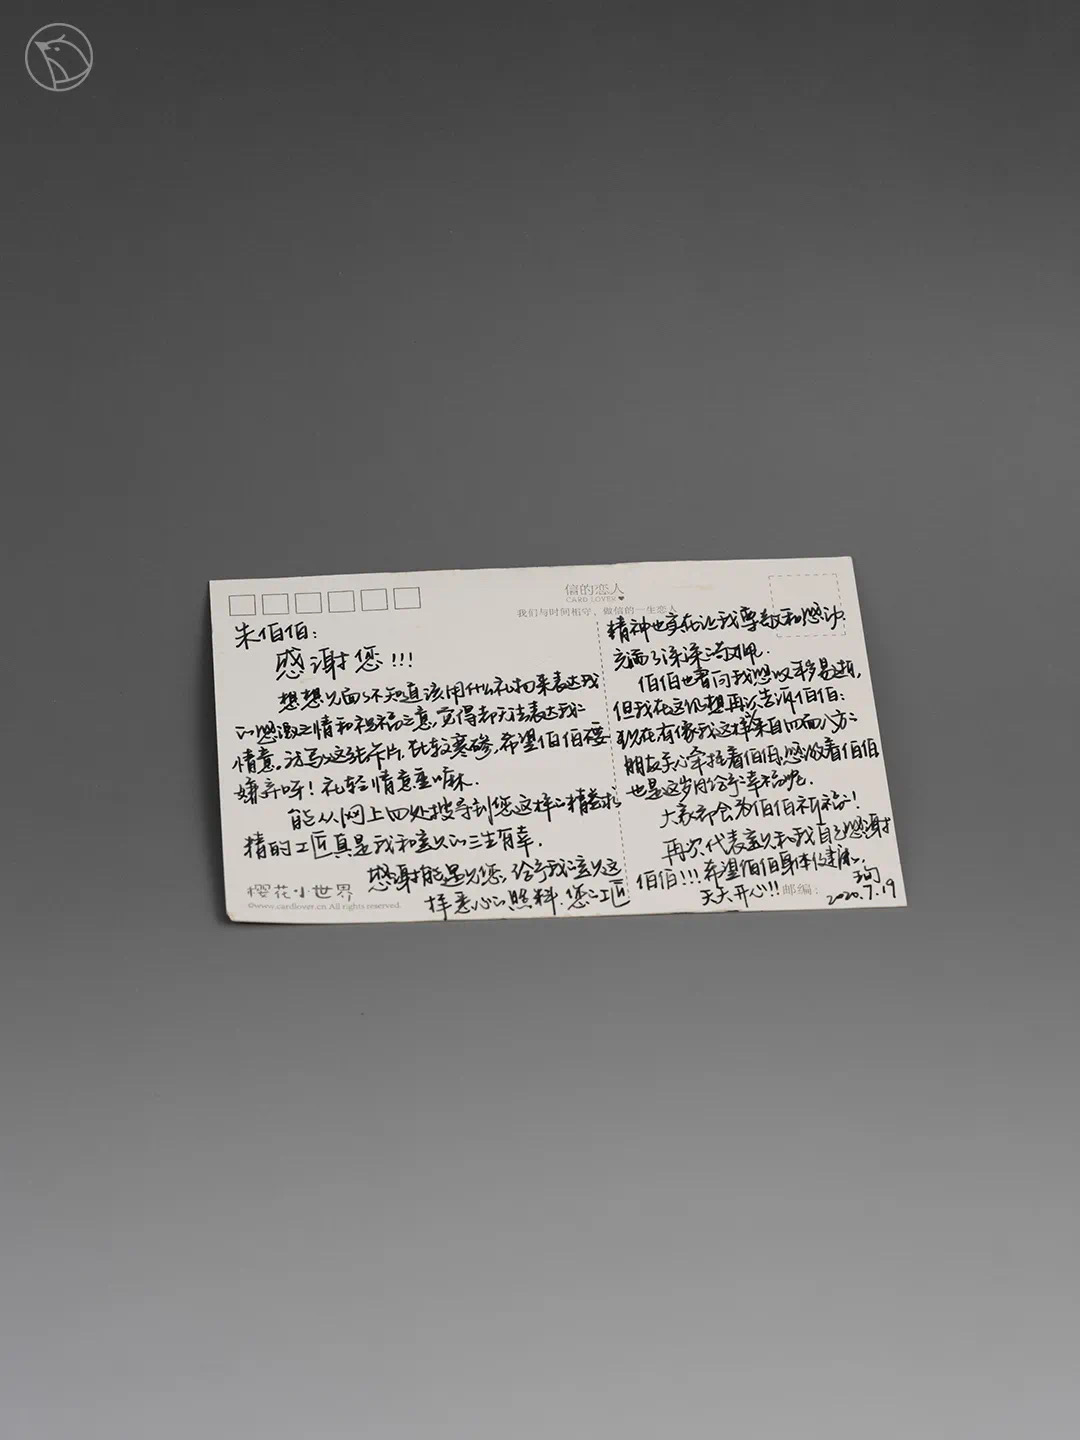 信的恋人
CARD LOVER
我们与时间相守，做信的一生恋人
朱伯伯：
感谢您!!!
想想见面了不知道该用什么礼物来表达我
的感激之情和祝福之意，觉得都无法表达我的
情意。请写这张卡片，比较寒碜，希望伯伯不要
嫌弃呀！礼轻情意重嘛。
能从网上四处搜寻到您这样的精益求
精的工匠真是我和的三生有幸。
感谢能遇见您，给予我这
样悉心的照料，您的工匠
精神也实在让我尊敬和感动
充满了深深的
伯伯也曾向我感叹易逝，
但我在这里想再次告诉伯伯：
现在有像我这样来自四面八方的
朋友关心牵挂着伯伯，感激着伯伯
也是这岁月给予的幸福呢。
大家都会为伯伯祈福的！
再次代表和我自己感谢
伯伯!!!希望伯伯身体健康，
天天开心!!!
2020.7.19
邮编：
樱花小世界
©www.cardlover.cn All rights reserved.